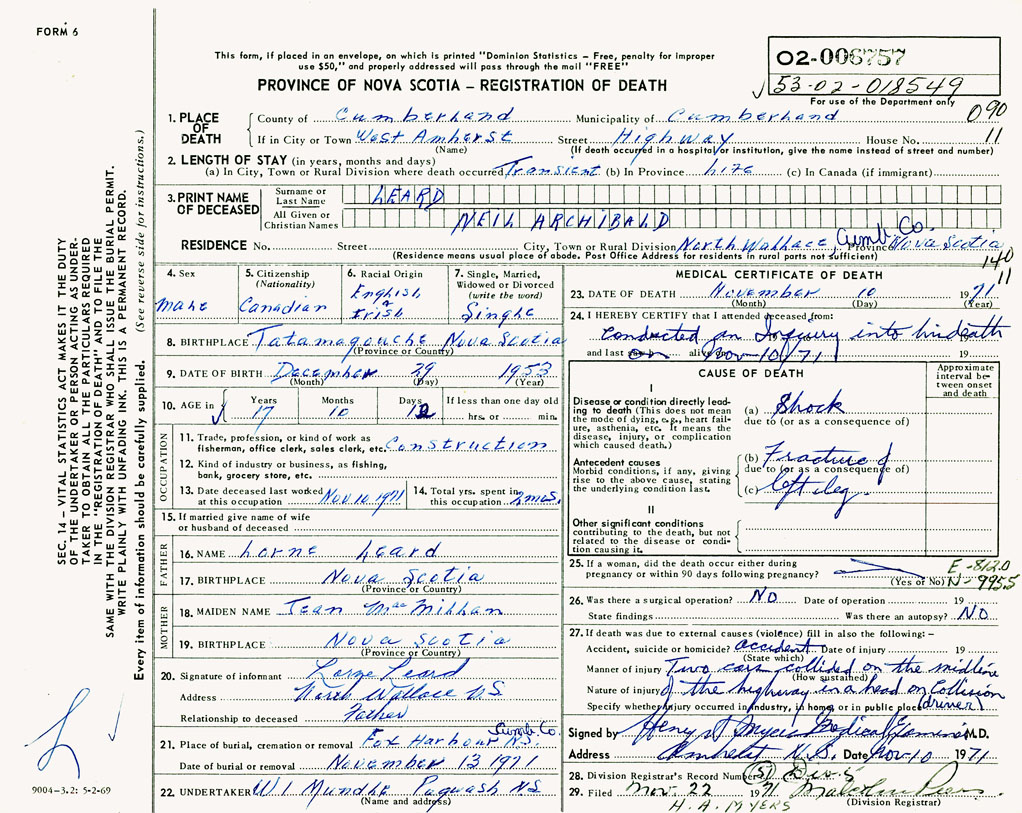 FORM 6
This form, if placed in an envelope, on which is printed "Dominion Statistics – Free, penalty for improper
use $50," and properly addressed will pass through the mail "FREE"
PROVINCE OF NOVA SCOTIA – REGISTRATION OF DEATH
02-006757
53-02-018549
For use of the Department only
090
11
1. PLACE OF DEATH
County of Cumberland Municipality of Cumberland
If in City or Town West Amherst Street Highway House No.
(Name) (If death occurred in a hospital or institution, give the name instead of street and number)
2. LENGTH OF STAY (in years, months and days)
(a) In City, Town or Rural Division where death occurred Transient (b) In Province life (c) In Canada (if immigrant)
3. PRINT NAME OF DECEASED
Surname or Last Name LEARD
All Given or Christian Names NEIL ARCHIBALD
RESIDENCE No. Street City, Town or Rural Division North Wallace Cumb Co. Province Nova Scotia
(Residence means usual place of abode. Post Office Address for residents in rural parts not sufficient)
140
11
4. Sex
Male
5. Citizenship
(Nationality)
Canadian
6. Racial Origin
English
Irish
7. Single, Married,
Widowed or Divorced
(write the word)
Single
8. BIRTHPLACE Tatamagouche Nova Scotia
(Province or County)
9. DATE OF BIRTH December 29 1953
(Month) (Day) (Year)
10. AGE in Years 17 Months 10 Days 12 If less than one day old
hrs. or min.
OCCUPATION
11. Trade, profession, or kind of work as
fisherman, office clerk, sales clerk, etc. Construction
12. Kind of industry or business, as fishing,
bank, grocery store, etc.
13. Date deceased last worked
at this occupation Nov 10 1971
14. Total yrs. spent in
this occupation 2 mos.
15. If married give name of wife
or husband of deceased
FATHER
16. NAME Lorne Leard
17. BIRTHPLACE Nova Scotia
(Province or County)
MOTHER
18. MAIDEN NAME Jean MacMillan
19. BIRTHPLACE Nova Scotia
(Province or County)
20. Signature of informant Lorne Leard
Address North Wallace NS
Relationship to deceased Father
21. Place of burial, cremation or removal Fox Harbour N.S. Cumb Co.
Date of burial or removal November 13 1971
22. UNDERTAKER W L Pugwash NS
(Name and address)
MEDICAL CERTIFICATE OF DEATH
23. DATE OF DEATH November 10 1971
(Month) (Day) (Year)
24. I HEREBY CERTIFY that I attended deceased from:
Conducted an Inquiry into his death
and last alive Nov-10/71 19
CAUSE OF DEATH
Approximate
interval be-
tween onset
and death
I
Disease or condition directly lead-
ing to death (This does not mean
the mode of dying, e.g., heart fail-
ure, asthenia, etc. It means the
disease, injury, or complication
which caused death.)
(a) Shock
due to (or as a consequence of)
Antecedent causes
Morbid conditions, if any, giving
rise to the above cause, stating
the underlying condition last.
(b) Fracture of
due to (or as a consequence of)
(c) left leg
II
Other significant conditions
contributing to the death, but not
related to the disease or condi-
tion causing it.
25. If a woman, did the death occur either during
pregnancy or within 90 days following pregnancy?
(Yes or No)
E-812.0
N-995.5
26. Was there a surgical operation? No Date of operation 19
State findings Was there an autopsy? No
27. If death was due to external causes (violence) fill in also the following:–
Accident, suicide or homicide? accident Date of injury 19
(State which)
Manner of injury Two cars collided on the midline
(How sustained)
Nature of injury of the highway in a head on Collision
Specify whether injury occurred in industry, in home, or in public place (driver)
Signed by Medical Examiner M.D.
Address Amherst N.S. Date Nov-10 1971
28. Division Registrar's Record Number
29. Filed Nov. 22 1971 Malcolm
(Division Registrar)
H.A. MYERS
SEC. 14 – VITAL STATISTICS ACT MAKES IT THE DUTY
OF THE UNDERTAKER OR PERSON ACTING AS UNDER-
TAKER TO OBTAIN ALL THE PARTICULARS REQUIRED
IN THE "REGISTRATION OF DEATH" AND TO FILE THE
SAME WITH THE DIVISION REGISTRAR WHO SHALL ISSUE THE BURIAL PERMIT.
WRITE PLAINLY WITH UNFADING INK. THIS IS A PERMANENT RECORD.
Every item of information should be carefully supplied. (See reverse side for instructions.)
9004-3.2: 5-2-69